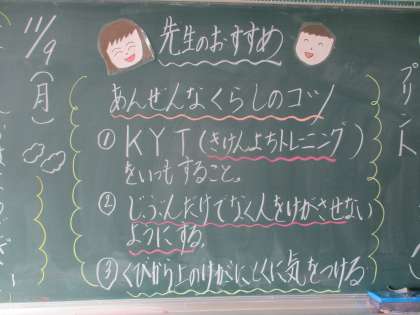 11/9(月)
先生のおすすめ
あんぜんなくらしのコツ
① KYT(きけんよちトレニング)
をいつもすること。
② じぶんだけでなく人をけがさせない
ようにする。
③ くびから上のけがにとくに気をつける
プリント